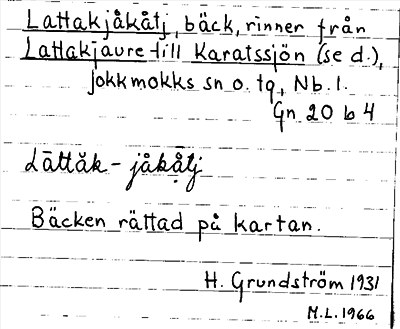 Lattakjåkåtj, bäck, rinner från
Lattakjaure till Karatssjön (se d.),
Jokkmokks sn o. tg, Nb. l.
Gn 20 b 4
Lāttǎk - jåkåtj
Bäcken rättad på kartan.
H. Grundström 1931
M.L. 1966